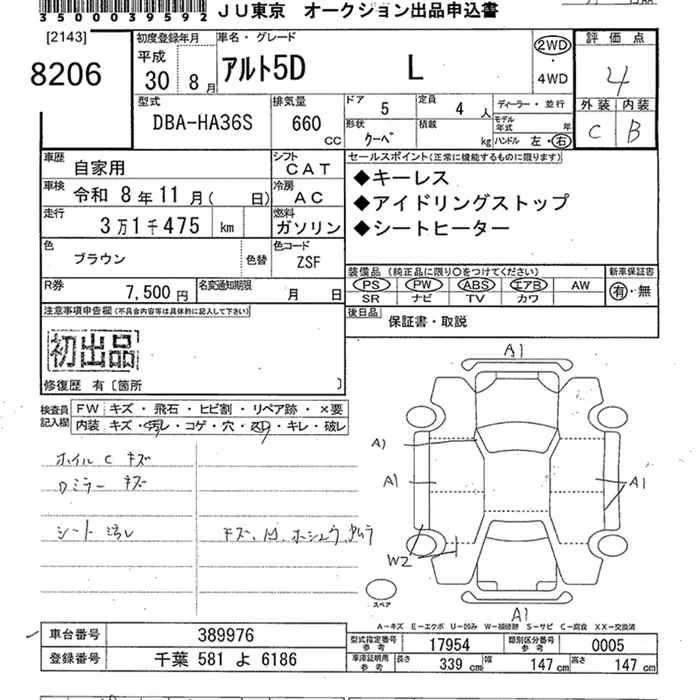 3500039592 JU東京 オークション出品申込書
[2143] 初度登録年月 車名・グレード 2WD・4WD 評価点
8206 平成 30 8月 アルト5D L 4
型式 排気量 ドア 5 定員 4人 ディーラー・並行 外装 内装
DBA-HA36S 660 CC 形状 クーペ 積載 kg モデル年式 年 ハンドル 左・右 C B
車歴 自家用 シフト CAT セールスポイント(正常に機能するものに限ります)
車検 令和 8年11月( 日) 冷房 AC ◆キーレス
走行 3万1千475 km 燃料 ガソリン ◆アイドリングストップ
◆シートヒーター
色 ブラウン 色替 色コード ZSF
R券 7,500円 名変通知期限 月 日
装備品(純正品に限り○をつけてください) 新車保証書
PS PW ABS エアB AW 有・無
SR ナビ TV カワ
注意事項申告欄(不具合内容等は具体的に記入して下さい) 後日品 保証書・取説
初出品
修復歴 有〔箇所 〕
検査員記入欄 FW キズ・飛石・ヒビ割・リペア跡・×要
内装 キズ・汚レ・コゲ・穴・スレ・キレ・破レ
ホイル C キズ
ロミラー キズ
シート 汚レ
A1
A1
A1
A1
W2
A1
スペア
A-キズ E-エクボ U-凹み W-補修跡 S-サビ C-腐食 XX-交換済
車台番号 389976 型式指定番号 参考 17954 類別区分番号 参考 0005
登録番号 千葉 581 よ 6186 車庫証明用 参考 長さ 339 cm 幅 147 cm 高さ 147 cm